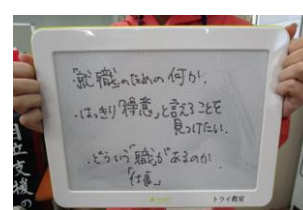 「就職」のための何か、
・はっきり「得意」と言えることを
見つけたい。
・どういう「職」があるのか
「仕事」
トライ教室
自立支援の